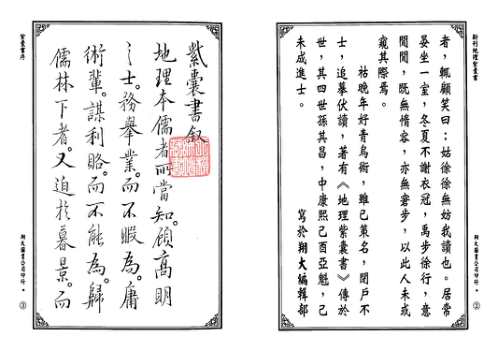 新刊地理紫囊書
者，輒顧笑曰：姑徐徐無妨我讀也。居常
晏坐一室，冬夏不謝衣冠，萬步徐行，意
閒閒，既無惰容，亦無窘步，以此人未或
窺其際焉。
祜晚年好青烏術，雖已策名，閉戶不
士，追摹伏讀，著有《地理紫囊書》傳於
世，其四世孫其昌，中康熙己酉亞魁，己
未成進士。
寫於翔大編輯部
翔大圖書公司印行
②
紫囊書叙
地理本儒者所當知。顧高明
之士。務舉業。而不暇為。庸
術輩。謀利賂。而不能為。歸
儒林下者。又迫於暮景。而
紫囊書序
翔大圖書公司印行
③